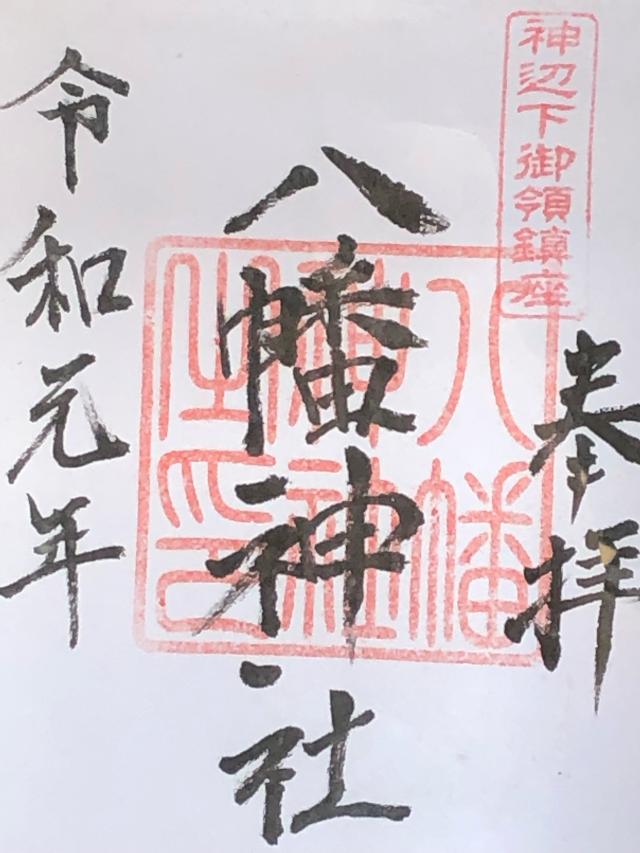 神辺下御領鎮座
奉拝
八幡神社
八幡神社之印
令和元年